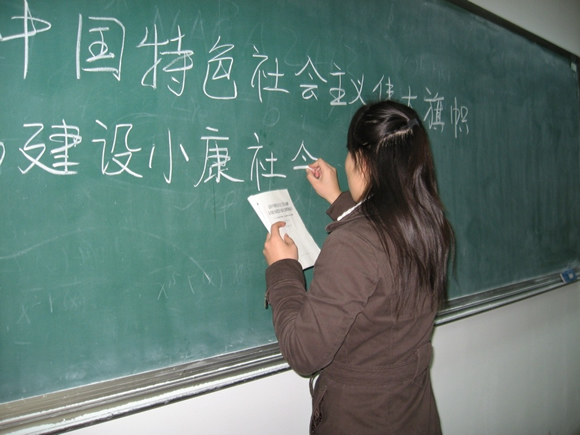 中国特色社会主义伟大旗帜
建设小康社会